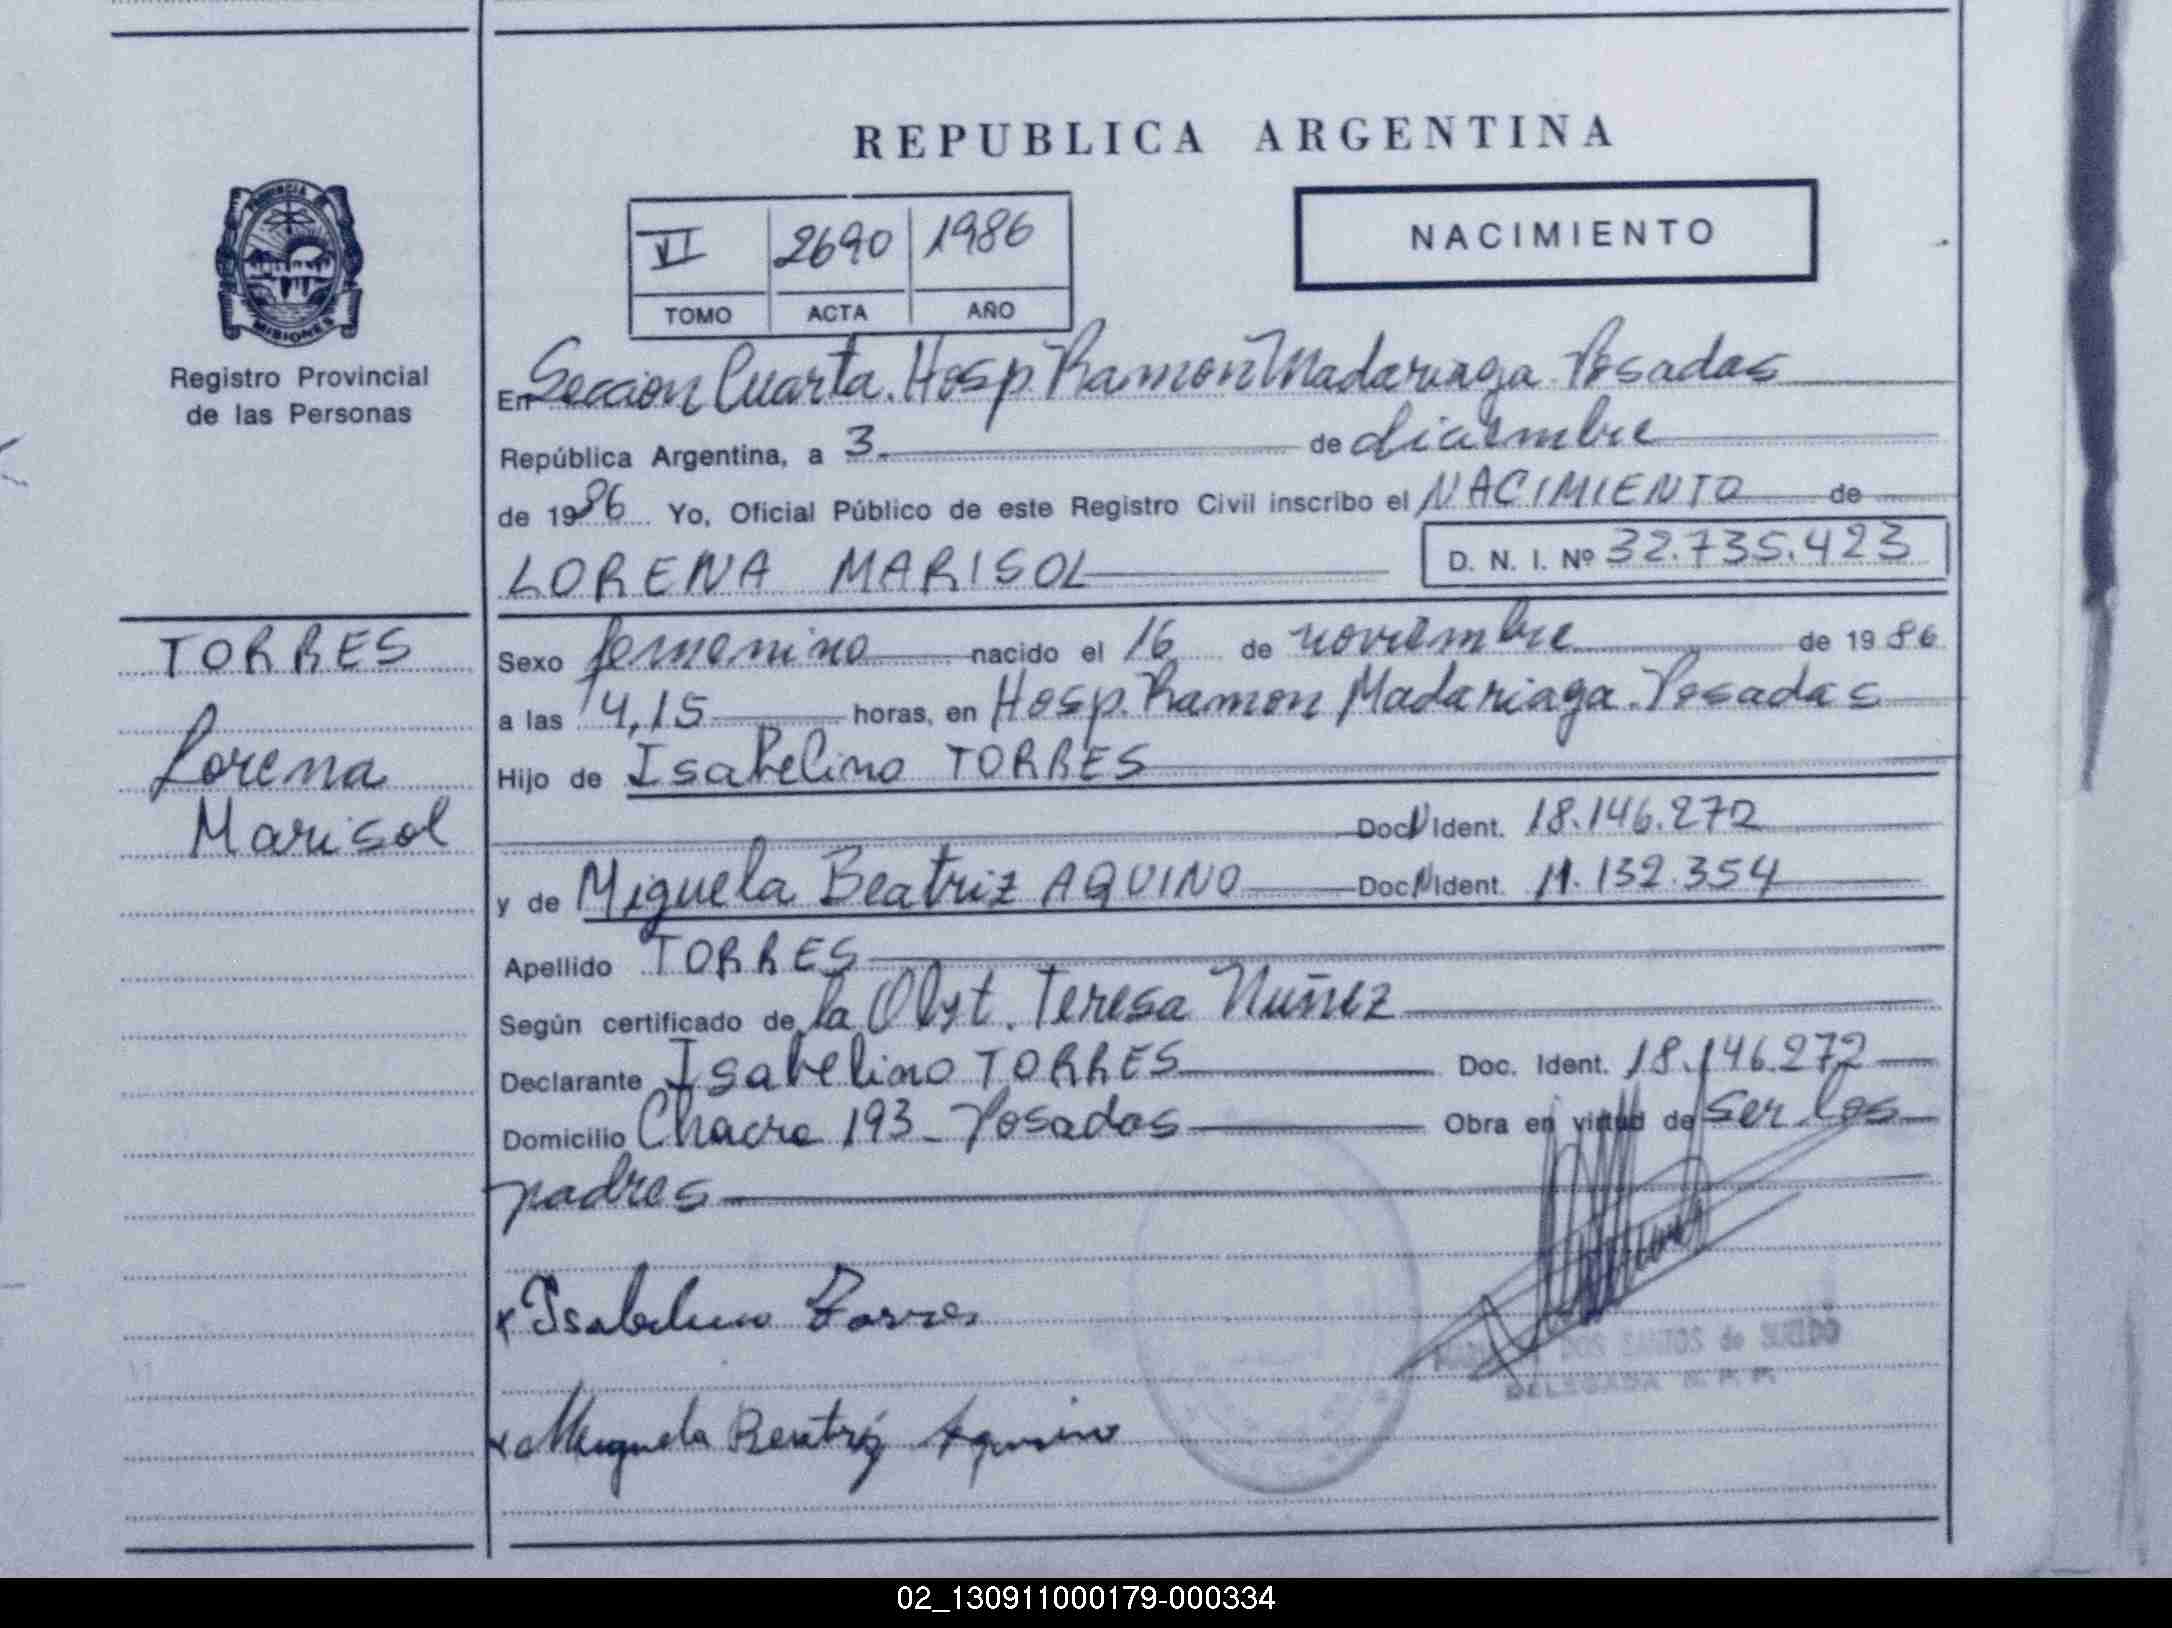 REPUBLICA ARGENTINA
PROVINCIA DE
MISIONES
Registro Provincial
de las Personas
VI 2690 1986
TOMO ACTA AÑO
NACIMIENTO
En Seccion Cuarta. Hosp. Ramon Madariaga. Posadas
República Argentina, a 3. de diciembre
de 1986 Yo, Oficial Público de este Registro Civil inscribo el NACIMIENTO de
LORENA MARISOL D. N. I. Nº 32.735.423
TORRES
Lorena
Marisol
Sexo femenino nacido el 16 de noviembre de 1986
a las 14,15 horas, en Hosp. Ramon Madariaga. Posadas
Hijo de Isabelino TORRES
Doc N Ident. 18.146.272
y de Miguela Beatriz AQUINO Doc N Ident. 11.132.354
Apellido TORRES
Según certificado de la Obst. Teresa Nuñez
Declarante Isabelino TORRES Doc. Ident. 18.146.272
Domicilio Chacra 193 - Posadas Obra en virtud de ser los
padres
x Isabelino Torres
DOS SANTOS de SUELDO
DELEGADA R. P. P.
x Miguela Beatriz Aquino
02_130911000179-000334